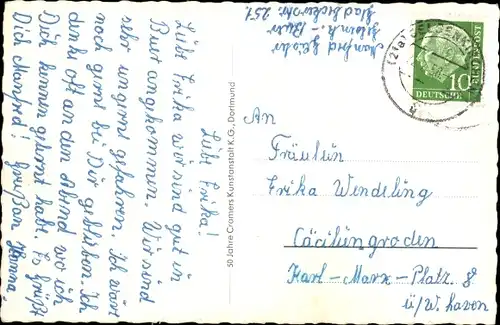 Liebe Erika!
Liebe Erika wir sind gut in
Buer angekommen. Wir sind
sehr ungern gefahren. Ich wäre
noch gerne bei Dir geblieben. Ich
denke oft an den Abend wo ich
Dich kennen gelernt habe. Es grüßt
Dich Manfred! Grüßen
50 Jahre Cramers Kunstanstalt K.G., Dortmund
Manfred
Gelsenk.-Buer
251
(21a) GELSENK
10
DEUTSCHE
BUNDESPOST
An
Fräulein
Erika Wendeling
Cäciliengroden
Karl-Marx-Platz 8
ü/W. haven